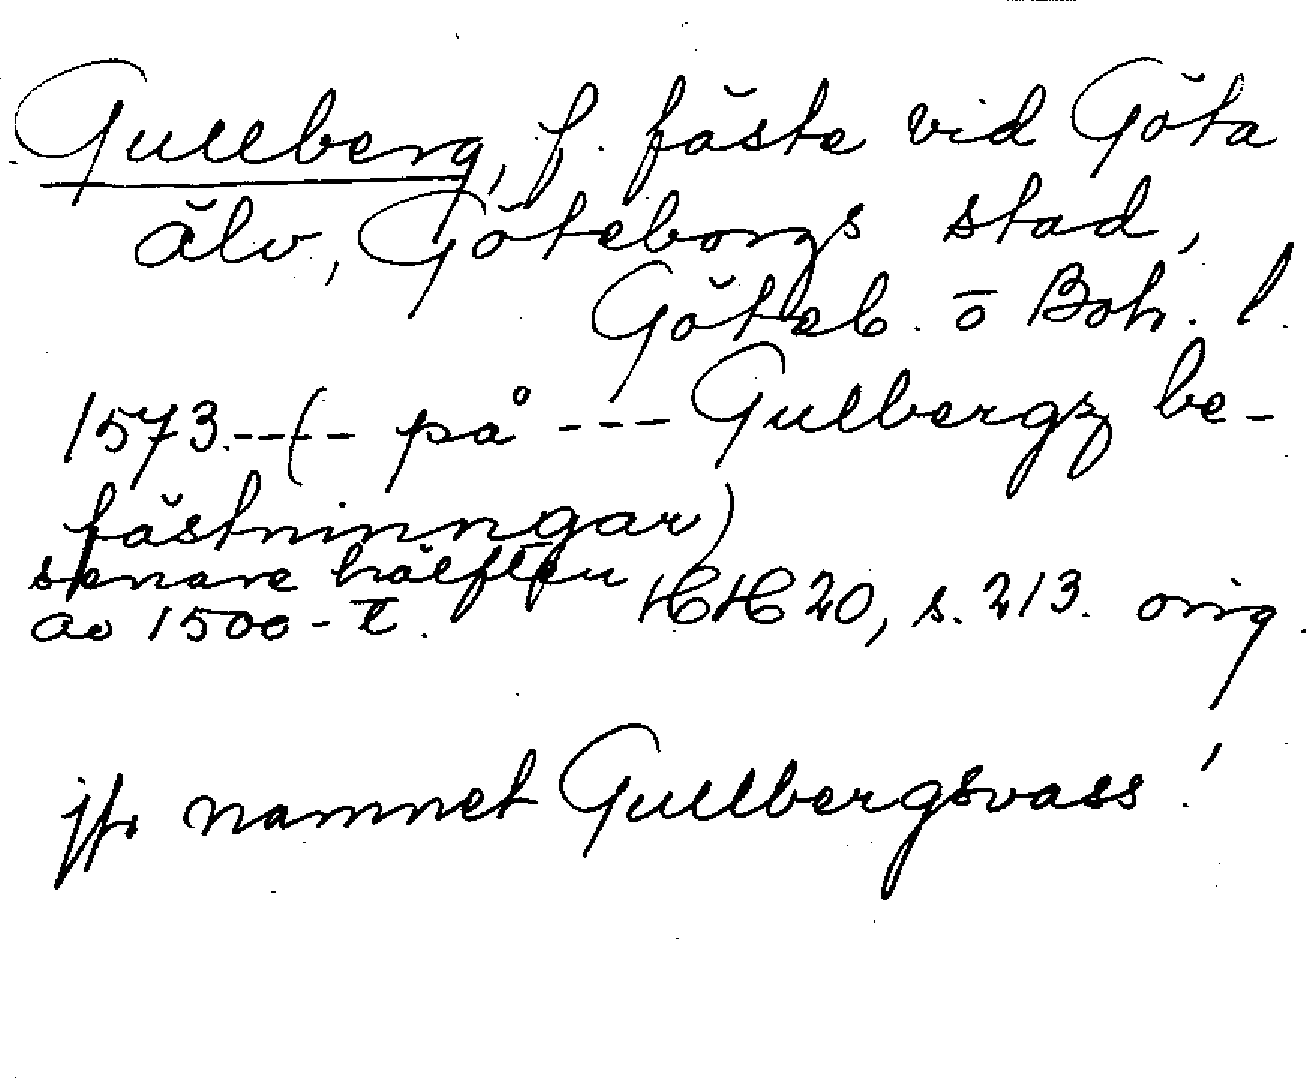 Gullberg, f. fäste vid Göta
älv, Göteborgs stad,
Göteb. o Boh. l.
1573.--(-- på --- Gulbergz be-
fästningar)
senare hälften
av 1500-t. HH 20, s. 213. orig.
jfr namnet Gullbergsvass!